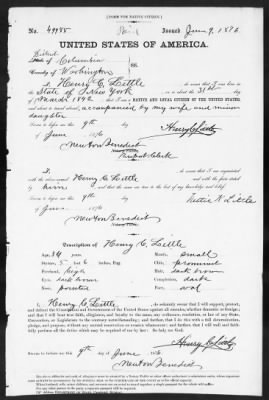 [FORM FOR NATIVE CITIZEN.]
No. 49985 Issued June 9, 1876
UNITED STATES OF AMERICA.
District
State of Columbia
County of Washington } ss.
I, Henry C. Little, do swear that I was born in
State of New York on the 31st day
of March 1842, that I am a NATIVE AND LOYAL CITIZEN OF THE UNITED STATES,
and about to travel abroad, accompanied by my wife and minor
daughter
Sworn to before me this 9th day
of June 1876 Henry C. Little
Newton Benedict
Notary Public
I, do swear that I am acquainted
with the above-named Henry C. Little and with the facts
him and that the same are true to the best of my knowledge and belief.
Sworn to before me this 9th day Nettie H. Little
of June 1876
Newton Benedict
Notary Public
Description of Henry C. Little
Age, 34 years Mouth, small
Stature, 5 feet 6 inches, Eng. Chin, prominent
Forehead, high Hair, dark brown
Eyes, dark brown Complexion, dark
Nose, pointed Face, oval
I, Henry C. Little, do solemnly swear that I will support, protect,
and defend the Constitution and Government of the United States against all enemies, whether domestic or foreign;
that I will bear true faith, allegiance, and loyalty to the same, any ordinance, resolution, or law of any State,
Convention, or Legislature to the contrary notwithstanding; and further, that I do this with a full determination,
pledge, and purpose, without any mental reservation or evasion whatsoever; and further, that I will well and faithfully
perform all the duties which may be required of me by law: So help me God.
Henry C. Little
Sworn to before me this 9th day of June 1876
Newton Benedict